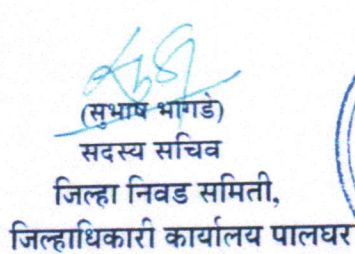 (सुभाष भागडे)
सदस्य सचिव
जिल्हा निवड समिती,
जिल्हाधिकारी कार्यालय पालघर